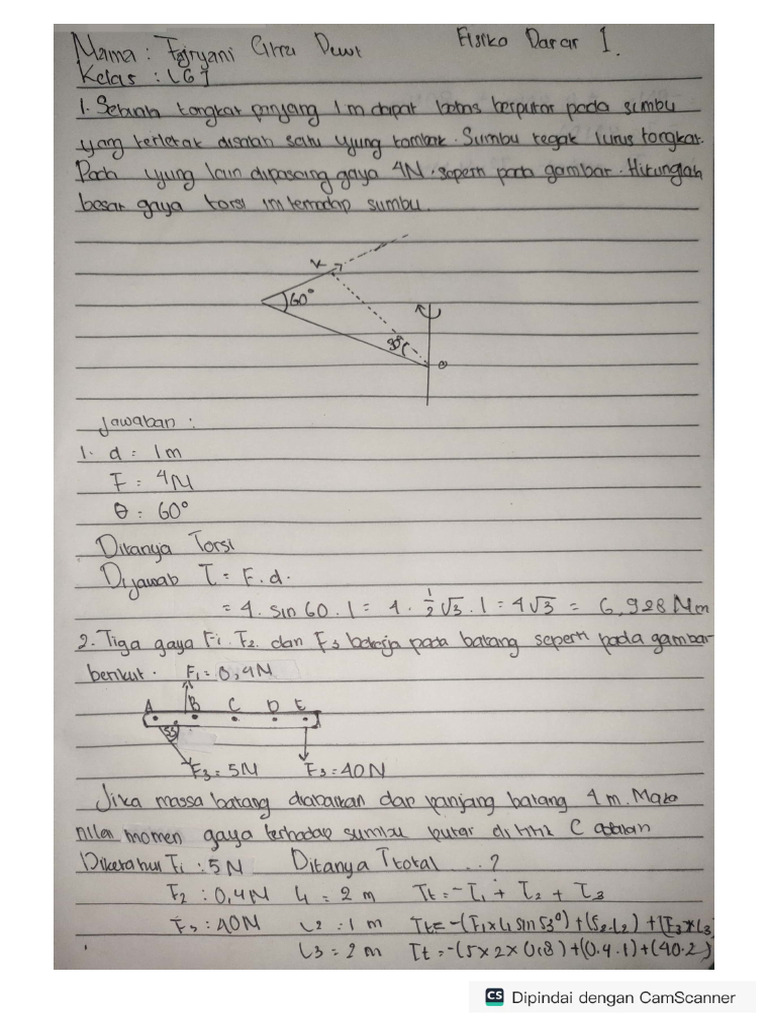 Nama : Fajryani Citra Dewi Fisika Dasar 1.
Kelas : LG1
1. Sebuah tongkat panjang 1m dapat bebas berputar pada sumbu
yang terletak disalah satu ujung tombak. Sumbu tegak lurus tongkat.
Pada ujung lain dipasang gaya 4N. seperti pada gambar. Hitunglah
besar gaya torsi ini terhadap sumbu.
60°
Jawaban :
1. d = 1m
F = 4N
θ = 60°
Ditanya Torsi
Dijawab τ = F.d.
= 4. sin 60 . 1 = 4. 1/2 √3 . 1 = 4√3 = 6,928 Nm
2. Tiga gaya F1. F2. dan F3 bekerja pada batang seperti pada gambar
berikut. F1 = 0,4N
A B C D E
53
F3 = 5N F3 = 40N
Jika massa batang diabaikan dan panjang batang 4 m. Maka
nilai momen gaya terhadap sumbu putar di titik C adalah
Diketahui F1 : 5N Ditanya τ total ...?
F2 : 0,4N L1 = 2 m τt = -τ1 + τ2 + τ3
F3 : 40N L2 = 1 m τt = -(F1 x L1 sin 53°) + (F2.L2) + (F3 x L3
L3 = 2 m τt = -(5 x 2 x 0,8) + (0.4 . 1) + (40 . 2)
Dipindai dengan CamScanner